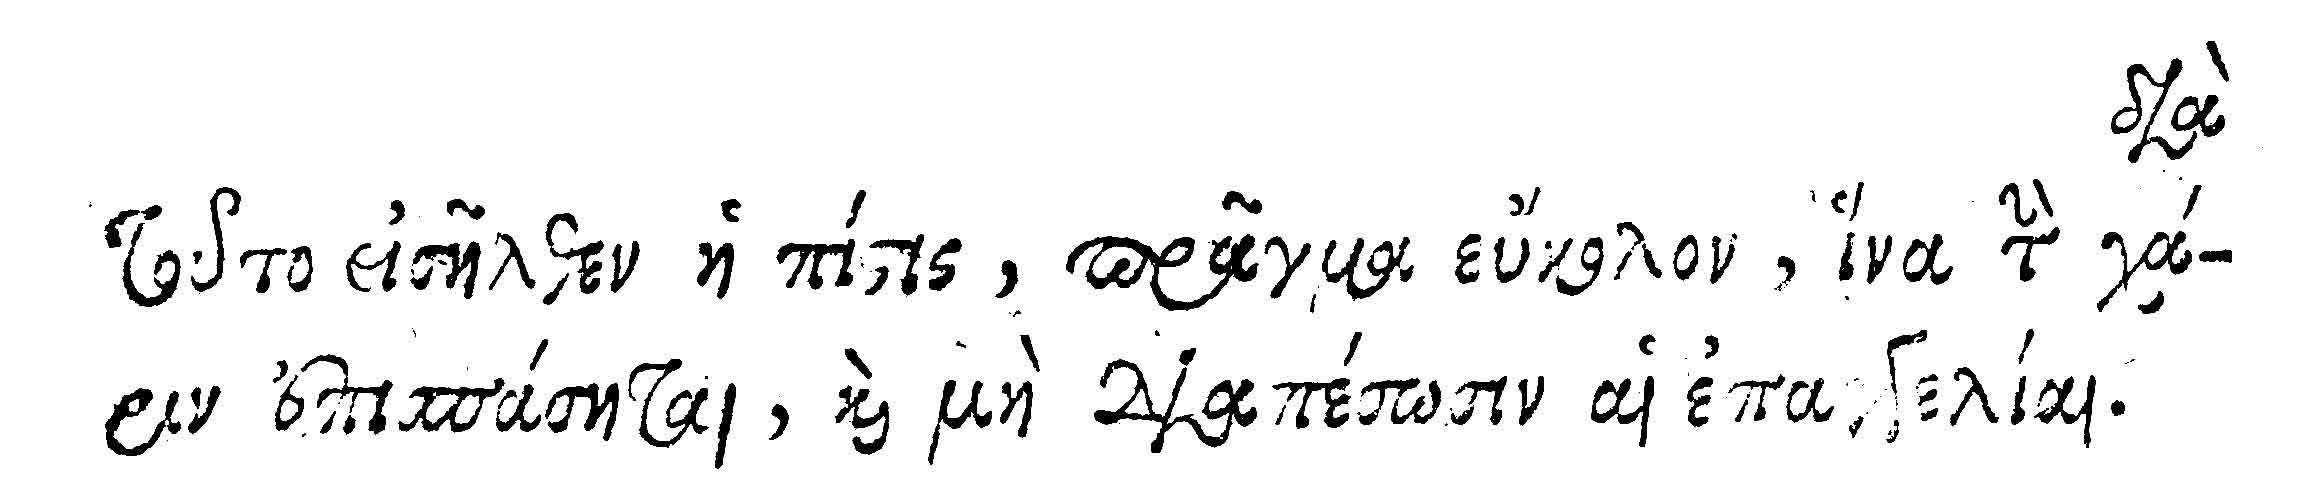 διὰ
τοῦτο εἰσῆλθεν ἡ πίστις, πρᾶγμα εὔκολον, ἵνα τὴν χά-
ριν ἐπισπάσηται, καὶ μὴ διαπέσωσιν αἱ ἐπαγγελίαι.